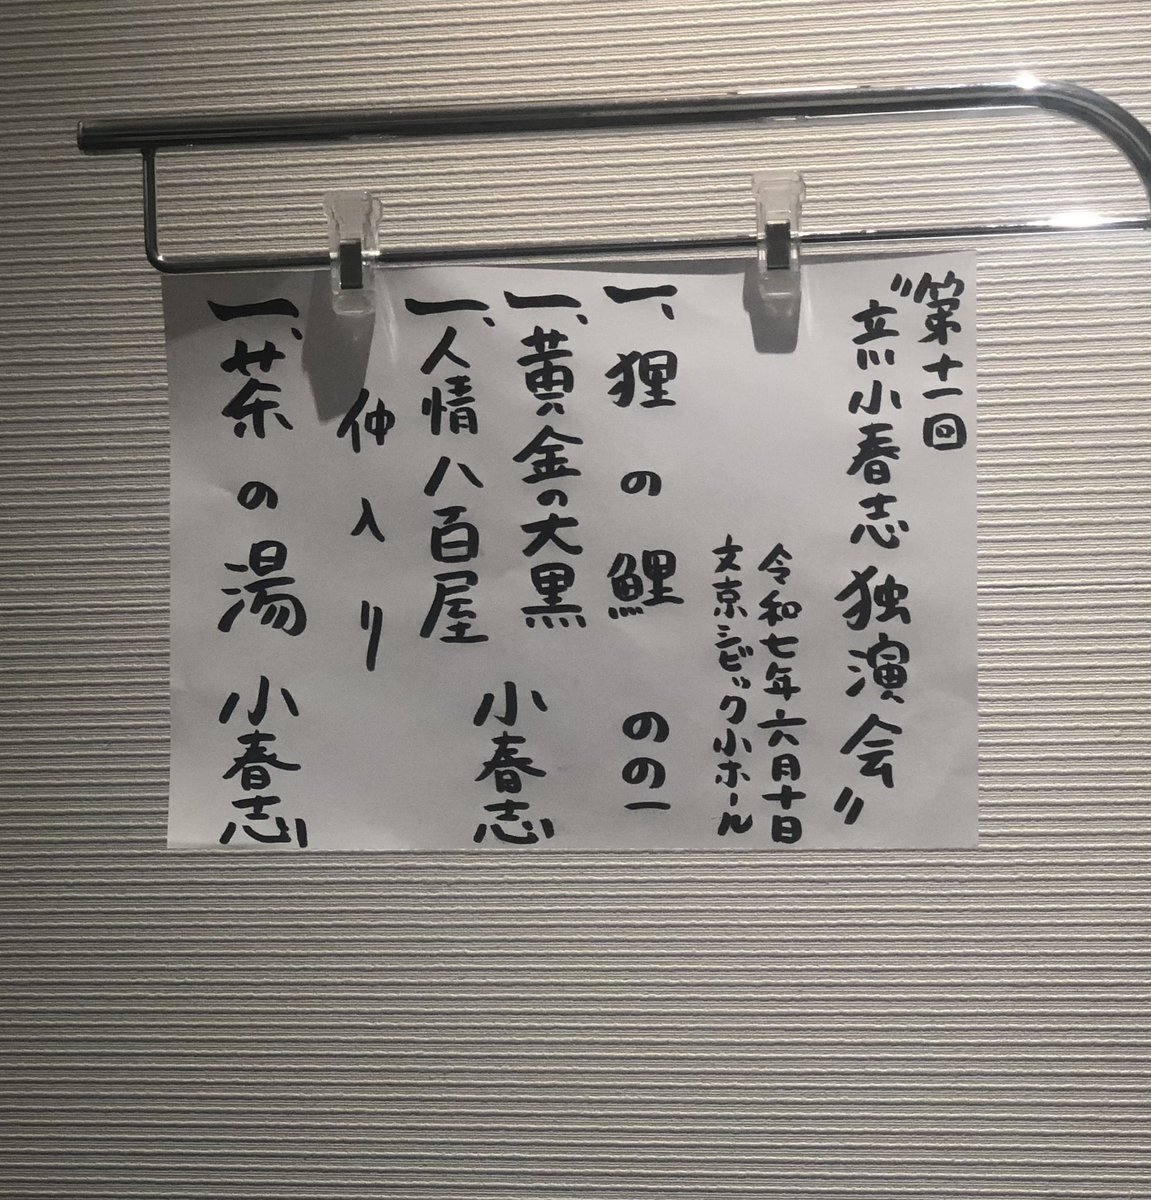 第十一回
"立川小春志 独演会"
令和七年六月十日
文京シビック小ホール
一、狸の鯉 のの一
一、黄金の大黒
一、人情八百屋 小春志
仲入り
一、茶の湯 小春志